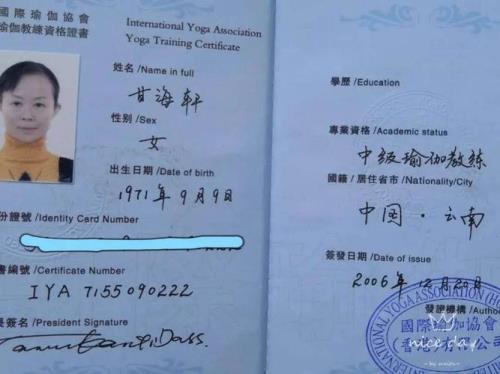 國際瑜伽協會
瑜伽教練資格證書
International Yoga Association
Yoga Training Certificate
姓名 /Name in full
甘海軒
性别 /Sex
女
出生日期 /Date of birth
1971年9月9日
份證號 /Identity Card Number
書編號 /Certificate Number
IYA 7155090222
長簽名 /President Signature
學歷 /Education
專業資格 /Academic status
中级瑜伽教练
國籍 / 居住省市 / Nationality/City
中国·云南
簽發日期 / Date of issue
2006年12月20日
發證機構 /Autho
INTERNATIONAL YOGA ASSOCIATION (H
國際瑜伽協會
香港 有限公司
nice day